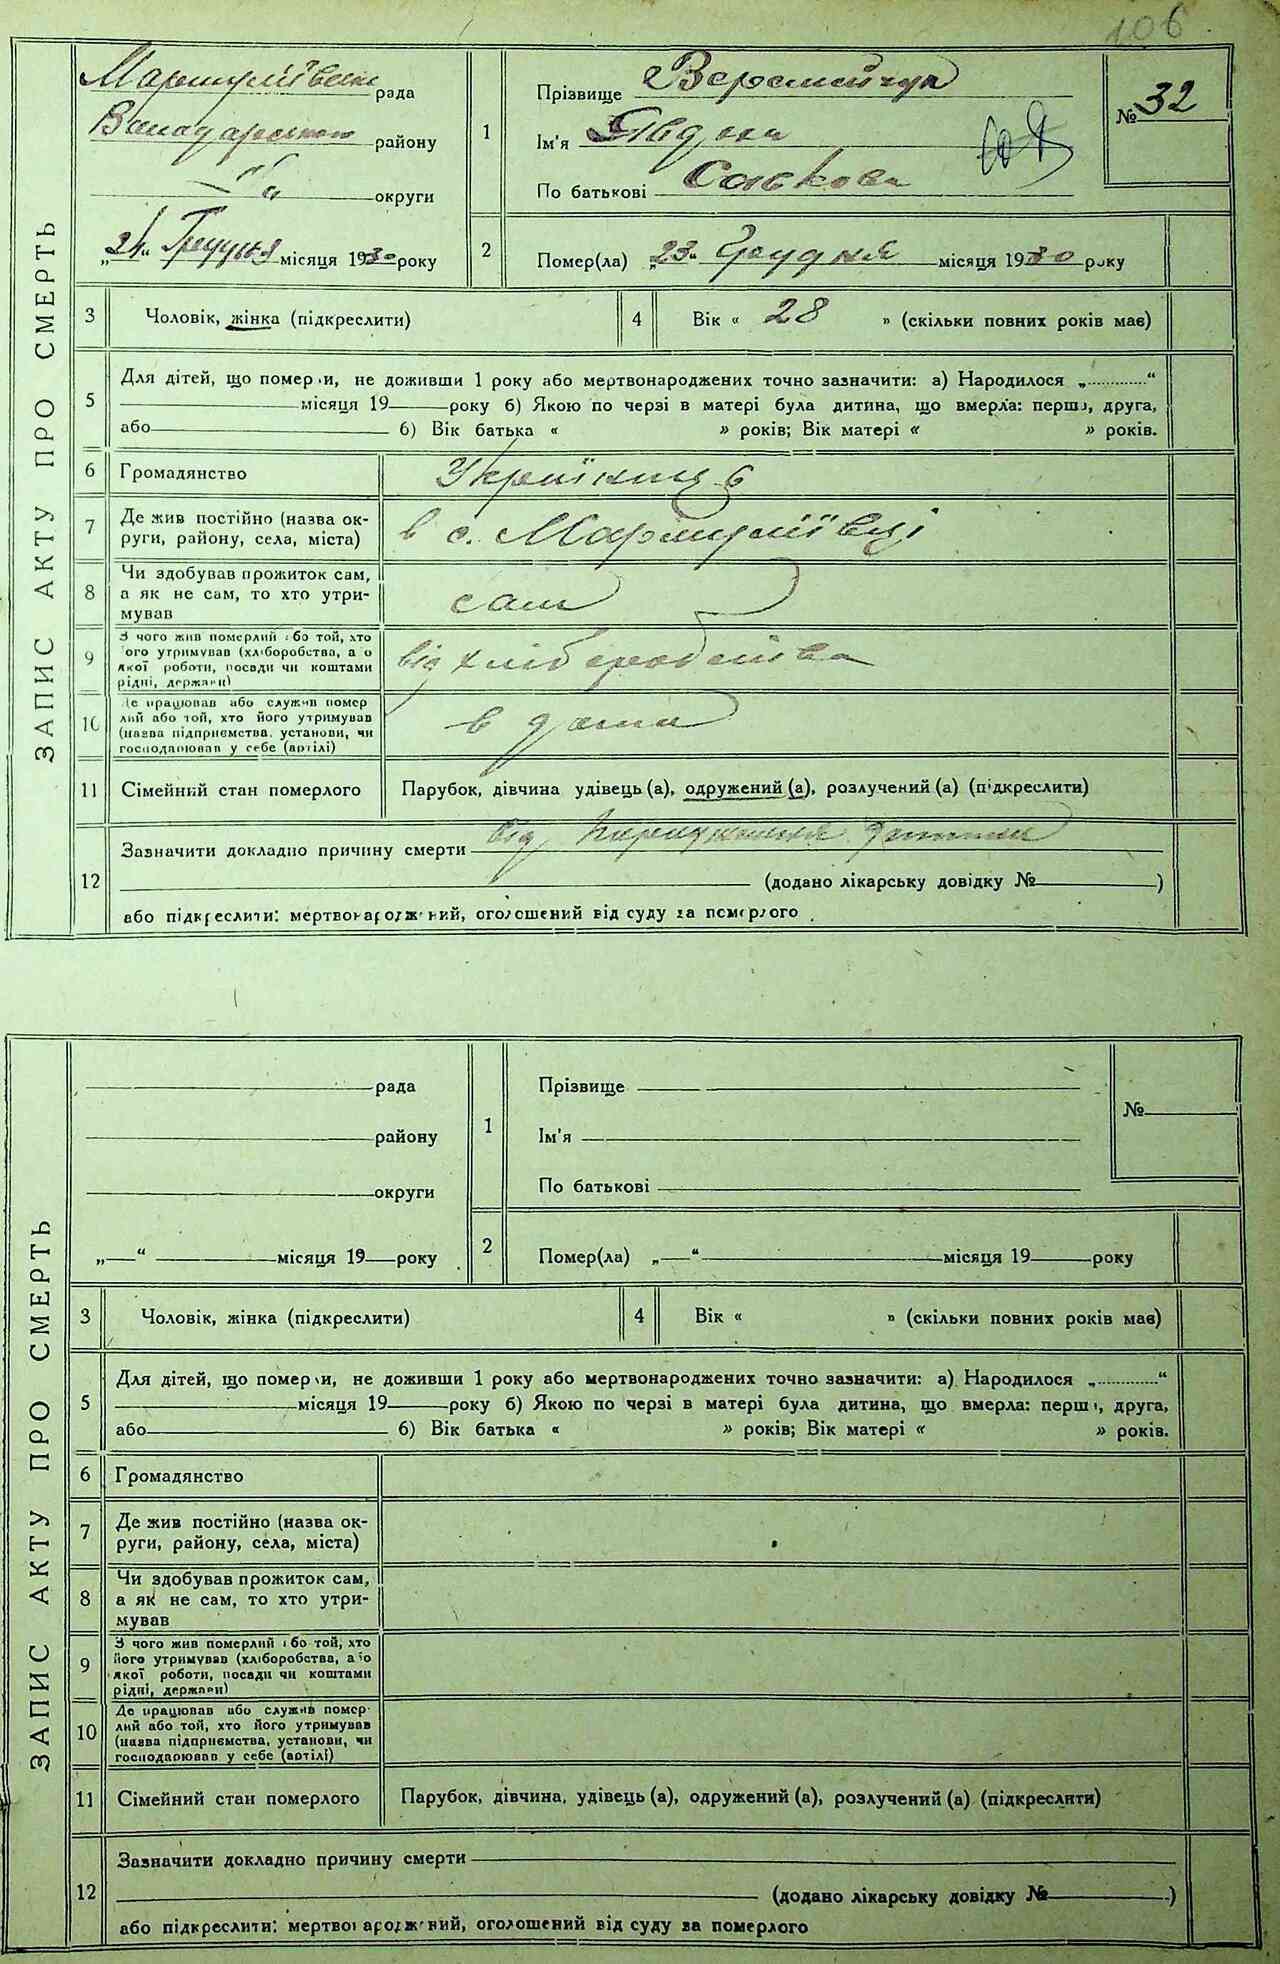 106
ЗАПИС АКТУ ПРО СМЕРТЬ
рада
району
округи
„24“ Грудня місяця 1930 року
1
Прізвище Веремейчук
Ім'я Явдоха
По батькові
№ 32
2
Помер(ла) „23“ Грудня місяця 1930 року
3
Чоловік, жінка (підкреслити)
4
Вік « 28 » (скільки повних років має)
5
Для дітей, що померли, не доживши 1 року або мертвонароджених точно зазначити: а) Народилося „............“
місяця 19 року б) Якою по черзі в матері була дитина, що вмерла: перша, друга,
або б) Вік батька « » років; Вік матері « » років.
6
Громадянство
7
Де жив постійно (назва ок-
руги, району, села, міста)
в с.
8
Чи здобував прожиток сам,
а як не сам, то хто утри-
мував
сам
9
З чого жив померлий або той, хто
його утримував (хліборобства, або
якої роботи, посади чи коштами
рідні, держави)
від хліборобства
10
Де працював або служив помер
лий або той, хто його утримував
(назва підприємства, установи, чи
господарював у себе (артілі)
в дома
11
Сімейний стан померлого
Парубок, дівчина удівець (а), одружений (а), розлучений (а) (підкреслити)
12
Зазначити докладно причину смерти від
(додано лікарську довідку № )
або підкреслити: мертвонароджений, оголошений від суду за померлого
ЗАПИС АКТУ ПРО СМЕРТЬ
рада
району
округи
„ “ місяця 19 року
1
Прізвище
Ім'я
По батькові
№
2
Помер(ла) „ “ місяця 19 року
3
Чоловік, жінка (підкреслити)
4
Вік « » (скільки повних років має)
5
Для дітей, що померли, не доживши 1 року або мертвонароджених точно зазначити: а) Народилося „............“
місяця 19 року б) Якою по черзі в матері була дитина, що вмерла: перша, друга,
або б) Вік батька « » років; Вік матері « » років.
6
Громадянство
7
Де жив постійно (назва ок-
руги, району, села, міста)
8
Чи здобував прожиток сам,
а як не сам, то хто утри-
мував
9
З чого жив померлий або той, хто
його утримував (хліборобства, або
якої роботи, посади чи коштами
рідні, держави)
10
Де працював або служив помер-
лий або той, хто його утримував
(назва підприємства, установи, чи
господарював у себе (артілі)
11
Сімейний стан померлого
Парубок, дівчина, удівець (а), одружений (а), розлучений (а) (підкреслити)
12
Зазначити докладно причину смерти
(додано лікарську довідку № )
або підкреслити: мертвонароджений, оголошений від суду за померлого